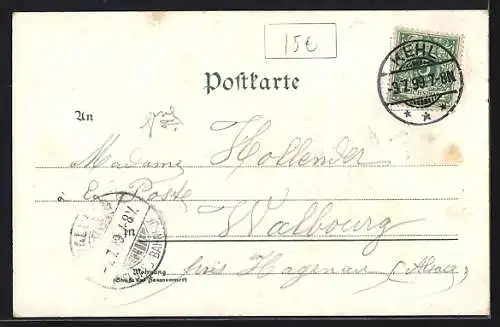 15€
Postkarte
KEHL
3.7.99.7-8N
An
Madame Hollender
à la Poste
in Walbourg
près Hagenau (Alsace)
Wohnung
(Straße und Hausnummer)